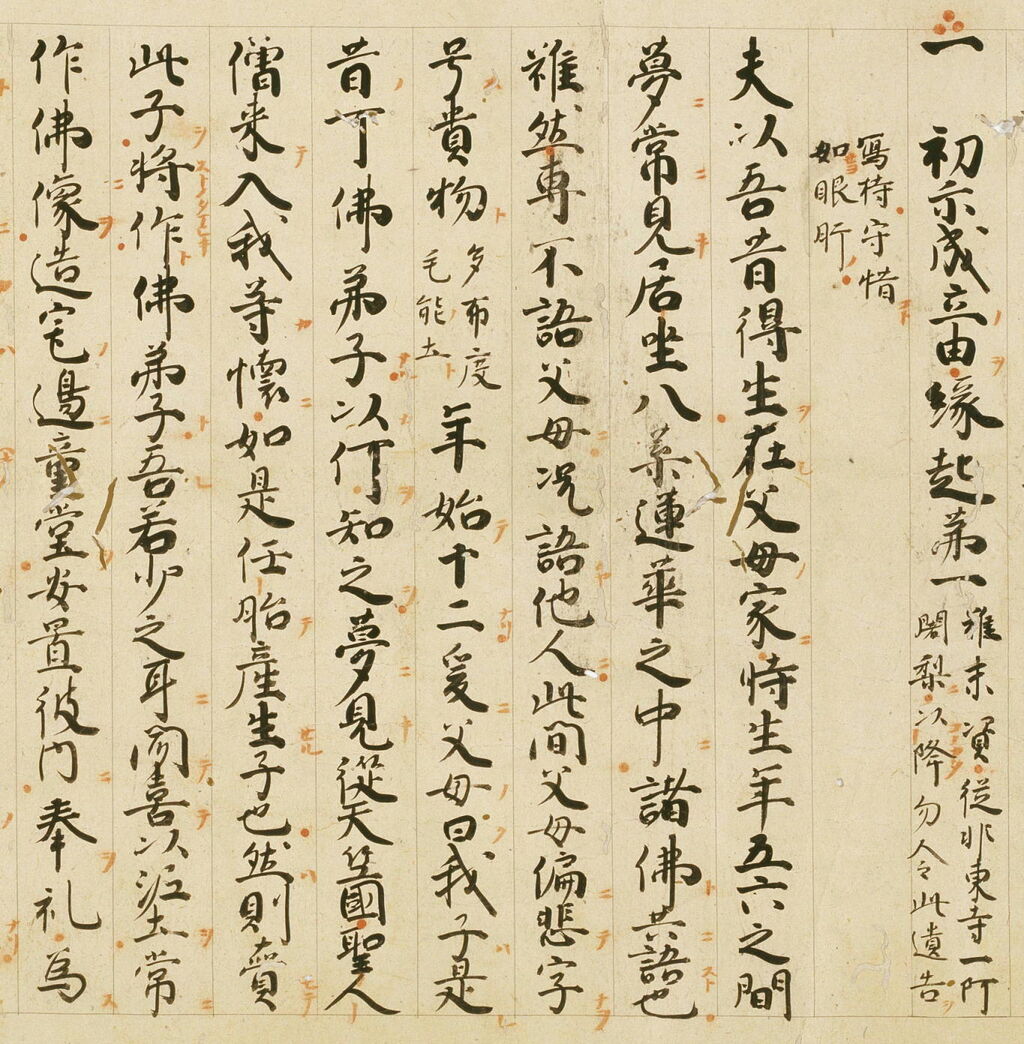 一 初示成立由緣起第一 雖末資從非東寺一阿
闍梨以降勿人令此遺告
寫持守惜
如眼肝
夫以吾昔得生在父母家時生年五六之間
夢常見居坐八葉蓮華之中諸佛共語也
雖然專不語父母況語他人此間父母偏悲字
号貴物 多布度
毛能土 年始十二爰父母曰我子是
昔可佛弟子以何知之夢見從天竺國聖人
僧來入我等懷如是任胎產生子也然則賷
此子將作佛弟子吾若少之耳聞喜以泥土常
作佛像造宅邊童堂安置彼內奉礼為